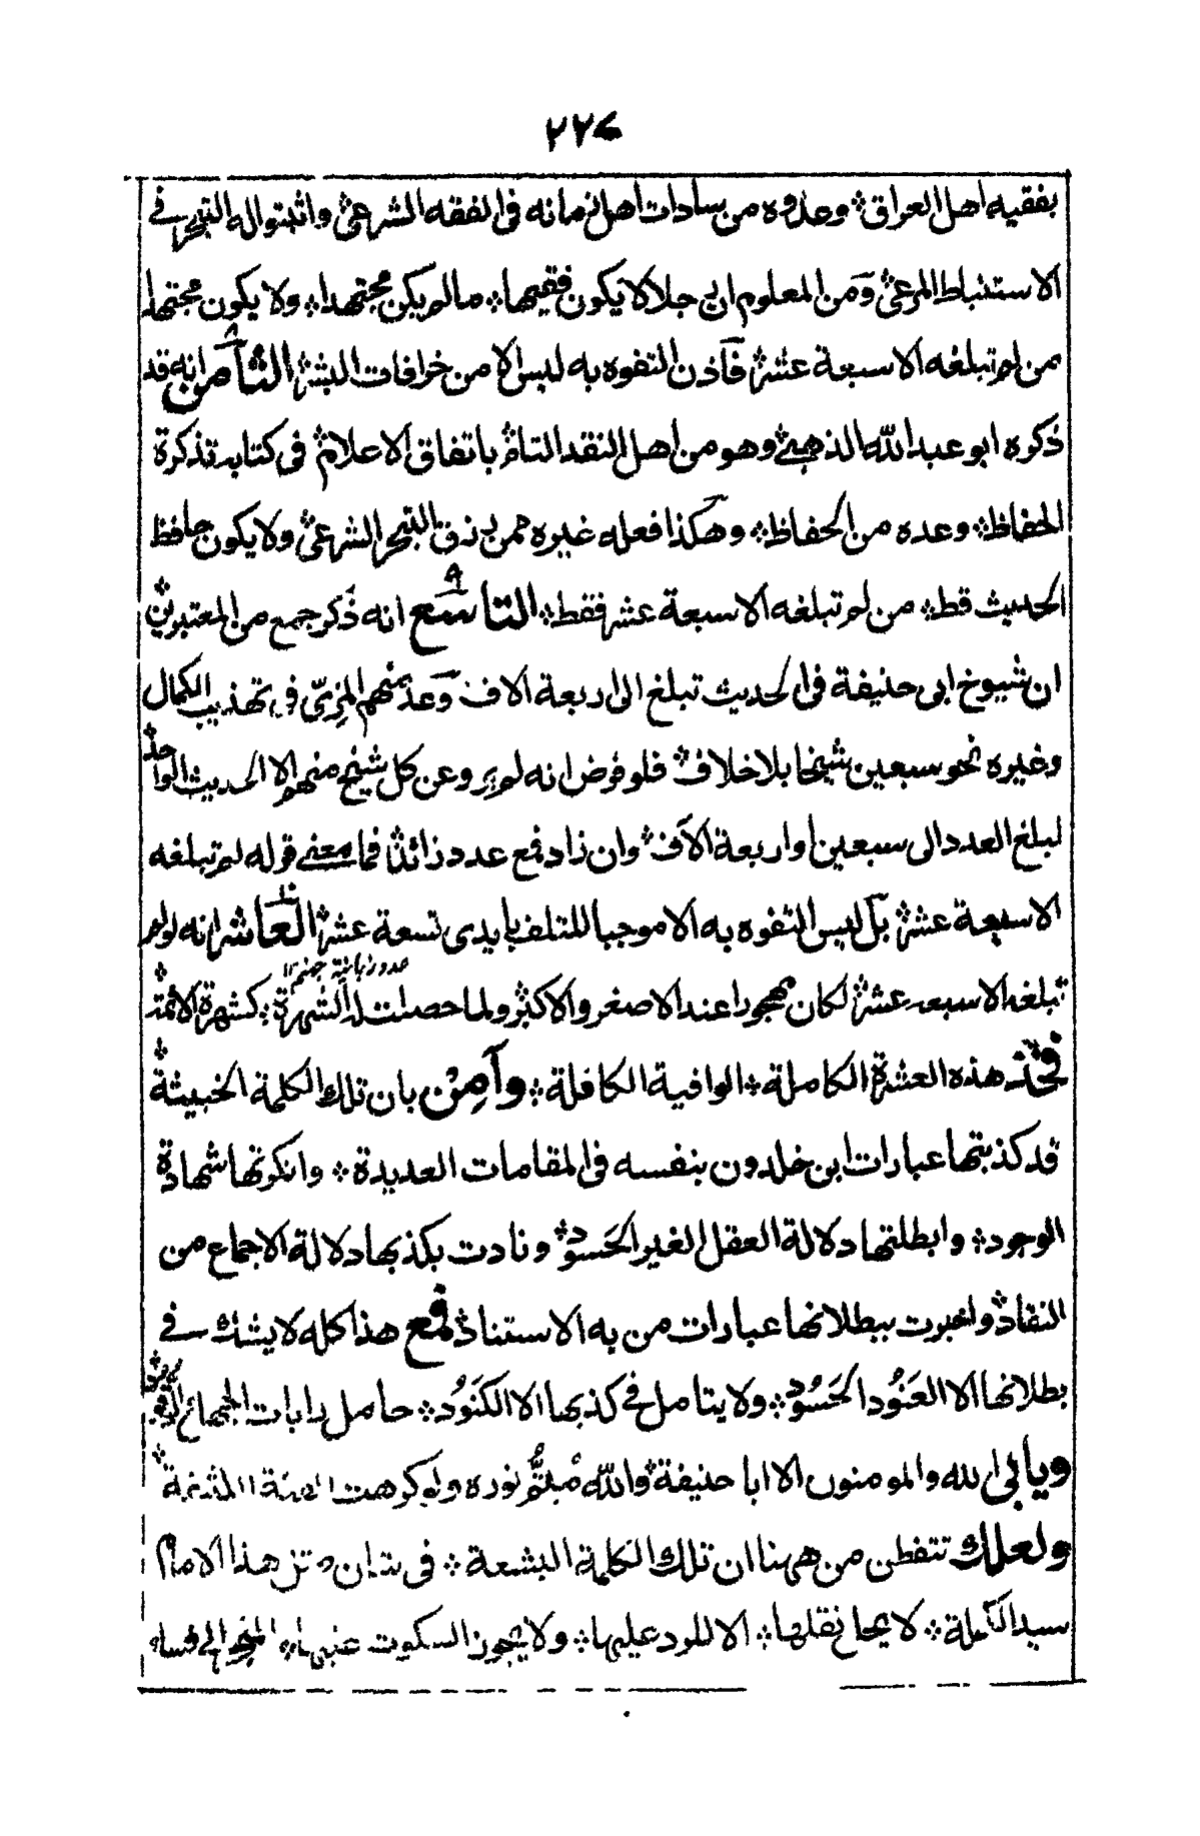 ٢٢٧
بفقيه اهل العراق؞ وعدوه من سادات اهل زمانه فى الفقه الشرعى؞ واثبتواله التبحر فى
الاستنباط المرعى؞ ومن المعلوم ان رجلا لا يكون فقيها؞ مالم يكن مجتهدا؞ ولا يكون مجتهدا
من لم تبلغه الا سبعة عشر؞ فآذن التفوه به ليس الا من خرافات البشر؞ الثامن انه قد
ذكره ابو عبد الله الذهبى؞ وهو من اهل النقد التام؞ باتفاق الاعلام؞ فى كتابه تذكرة
الحفاظ؞ وعده من الحفاظ؞ وهكذا فعله غيره ممن رزق التبحر الشرعى؞ ولا يكون حافظ
الحديث قط؞ من لم تبلغه الا سبعة عشر فقط؞ التاسع انه ذكر جمع من المعتبرين؞
ان شيوخ ابى حنيفة فى الحديث تبلغ الى اربعة الاف وعد منهم المزىّ فى تهذيب الكمال
وغيره نحو سبعين شيخا بلا خلاف؞ فلو فرض انه لم يرو عن كل شيخ منهم الا الحديث الواحد؞
لبلغ العدد الى سبعين او اربعة الآف؞ وان زاد فمع عدد زائد؞ فما معنى قوله لم تبلغه
الا سبعة عشر؞ بل ليس التفوه به الا موجبا للتلف بايدى تسعة عشر؞ العاشر انه لو لم
عدد زبانية جهنم ١٢
تبلغه الا سبعه عشر؞ لكان مهجورا عند الاصغر والاكبر؞ ولما حصلت له الشهرة؞ كشهرة الائمة؞
فخذ هذه العشرة الكاملة؞ الوافية الكافلة؞ وآمِنْ بان تلك الكلمة الخبيثة؞
قد كذبتها عبارات ابن خلدون بنفسه فى المقامات العديدة؞ وانكرتها شهادة
الوجود؞ وابطلتها دلالة العقل الغير الحَسود؞ ونادت بكذبها دلالة الاجماع من
النقاد؞ واخبرت ببطلانها عبارات من به الاستناد؞ فمع هذا كله لا يشك فى
بطلانها الا العَنُود الحَسُود؞ ولا يتامل فى كذبها الا الكَنُود؞ حامل رايات الجهل
ويابى الله والمومنون الا ابا حنيفة؞ والله مُتِمُّ نوره ولو كرهت
ولعلك تتفطن من ههنا ان تلك الكلمة البشعة؞ فى شان مثل هذا الامام
سيد الكملة؞ لا يحل نقلها؞ الا للرد عليها؞ ولا يجوز السكوت عنها؞ المنجر الى فساد